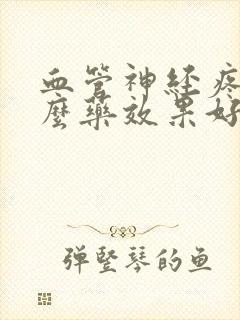 血管神经疼
麼藥效果好
弹竖琴的鱼